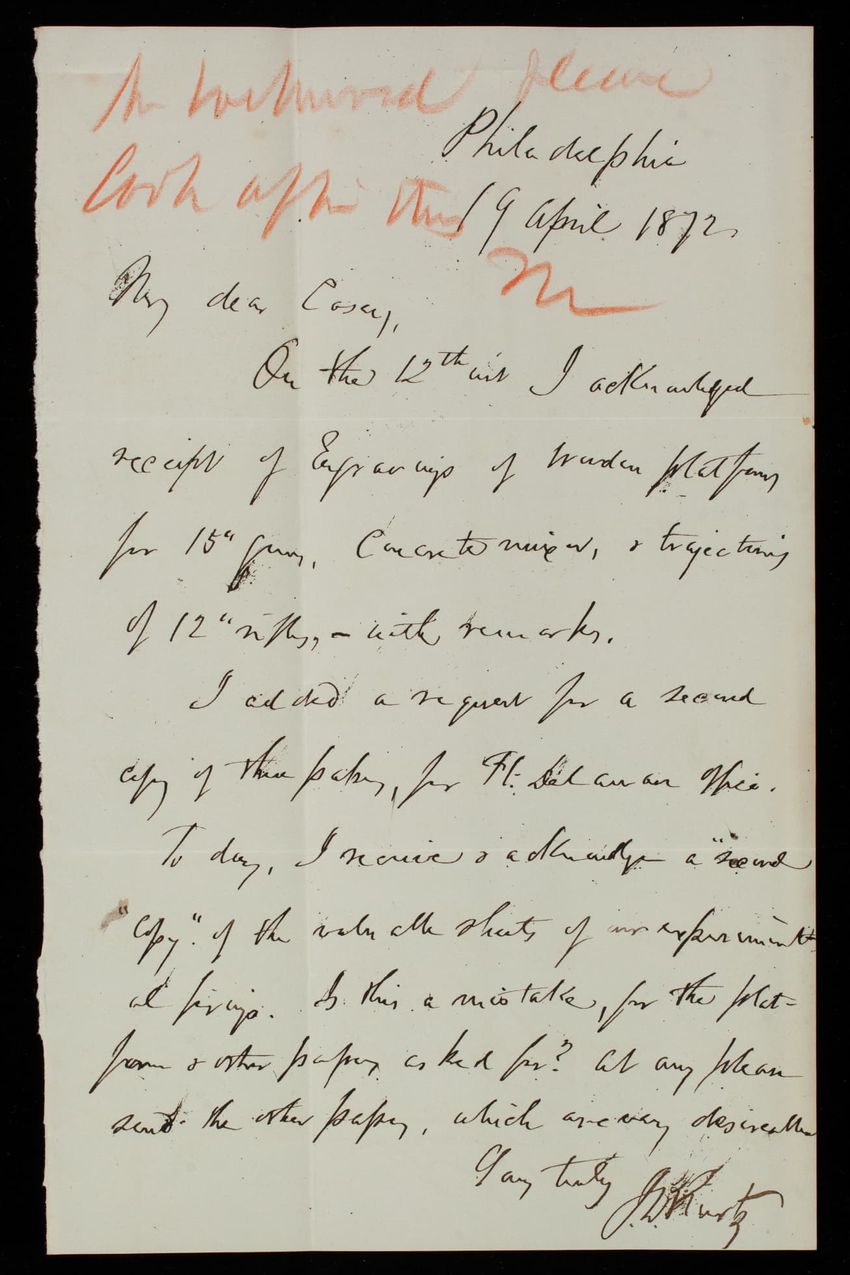 please
Philadelphia
look after this
19 April 1872.
M
My dear Casey,
On the 12th inst I acknowledged
receipt of Engravings of wooden platforms
for 15" guns, Concrete mixer, & trajectories
of 12" rifles, - with remarks.
I added a request for a second
copy of these papers, for Ft: Delaware office.
To day, I receive & acknowledge a "second
"copy". of the valuable sheets of our experiment-
al firings. Is this a mistake, for the plat-
form & other papers asked for? At any
send the other papers, which are very desireable
Yours truly
J. D. Kurtz